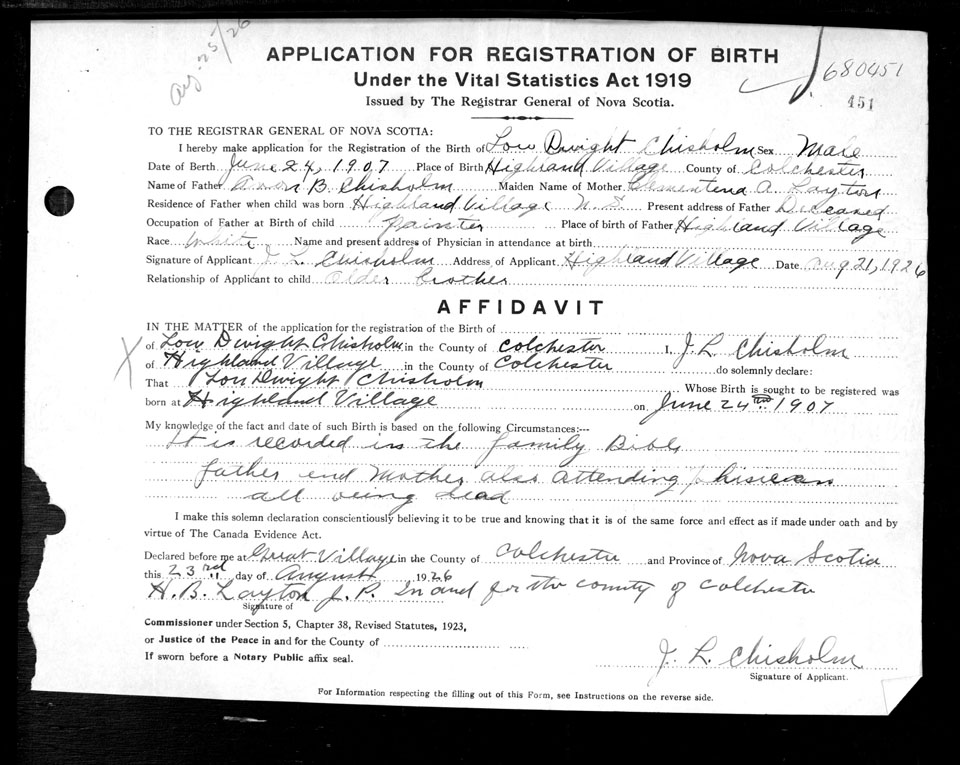 Aug. 25/26
APPLICATION FOR REGISTRATION OF BIRTH
Under the Vital Statistics Act 1919
Issued by The Registrar General of Nova Scotia.
680451
451
TO THE REGISTRAR GENERAL OF NOVA SCOTIA:
I hereby make application for the Registration of the Birth of Lou Dwight Chisholm Sex Male
Date of Birth June 24, 1907 Place of Birth Highland Village County of Colchester
Name of Father B. Chisholm Maiden Name of Mother Clementena A. Layton
Residence of Father when child was born Highland Village N.S Present address of Father Deceased
Occupation of Father at Birth of child painter Place of birth of Father Highland Village
Race White Name and present address of Physician in attendance at birth
Signature of Applicant J. L. Chisholm Address of Applicant Highland Village Date Aug 21, 1926
Relationship of Applicant to child older brother
AFFIDAVIT
IN THE MATTER of the application for the registration of the Birth of
of Lou Dwight Chisholm in the County of Colchester I, J. L. Chisholm
of Highland Village in the County of Colchester do solemnly declare:
That Lou Dwight Chisholm Whose Birth is sought to be registered was
born at Highland Village on June 24th 1907
My knowledge of the fact and date of such Birth is based on the following Circumstances:--
It is recorded in the family Bible
father and Mother also attending phisican
all being dead
I make this solemn declaration conscientiously believing it to be true and knowing that it is of the same force and effect as if made under oath and by
virtue of The Canada Evidence Act.
Declared before me at Great Village in the County of Colchester and Province of Nova Scotia
this 23rd day of August 1926
H. B. Layton J. P. In and for the county of Colchester
Signature of
Commissioner under Section 5, Chapter 38, Revised Statutes, 1923,
or Justice of the Peace in and for the County of
If sworn before a Notary Public affix seal.
J. L. Chisholm
Signature of Applicant.
For Information respecting the filling out of this Form, see Instructions on the reverse side.